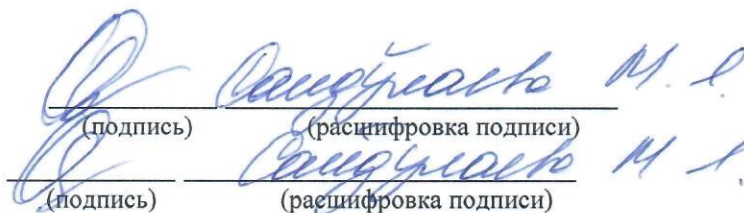 Сандулаева М. Я.
(подпись) (расшифровка подписи)
Сандулаева М Я.
(подпись) (расшифровка подписи)